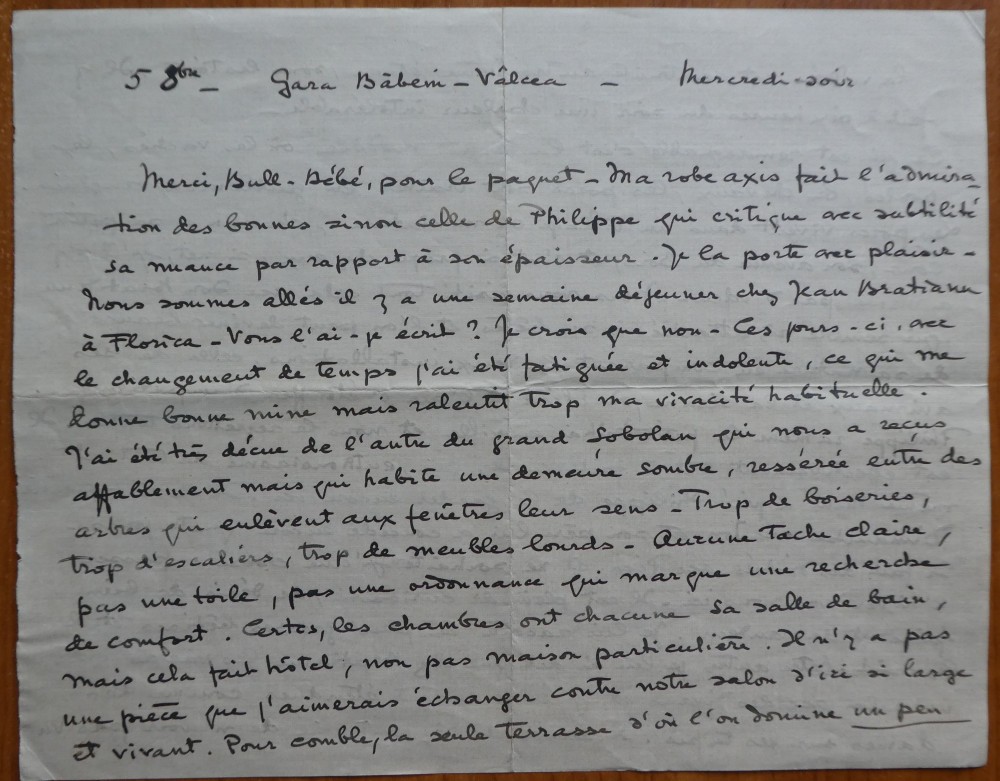 5 8bre – Gara Băbeni – Vâlcea – Mercredi-soir
Merci, Bull-Bébé, pour le paquet – Ma robe axis fait l'admira-
tion des bonnes sinon celle de Philippe qui critique avec subtilité
sa nuance par rapport à son épaisseur. Je la porte avec plaisir –
Nous sommes allés il y a une semaine déjeuner chez Jean Bratianu
à Florica – Vous l'ai-je écrit ? Je crois que non – Ces jours-ci, avec
le changement de temps j'ai été fatiguée et indolente, ce qui me
donne bonne mine mais ralentit trop ma vivacité habituelle.
J'ai été très déçue de l'antre du grand Sobolan qui nous a reçus
affablement mais qui habite une demeure sombre, ressérée entre des
arbres qui enlèvent aux fenêtres leur sens – Trop de boiseries,
trop d'escaliers, trop de meubles lourds – Aucune tache claire,
pas une toile, pas une ordonnance qui marque une recherche
de comfort. Certes, les chambres ont chacune sa salle de bain,
mais cela fait hôtel, non pas maison particulière. Il n'y a pas
une pièce que j'aimerais échanger contre notre salon d'ici si large
et vivant. Pour comble, la seule terrasse d'où l'on domine un peu